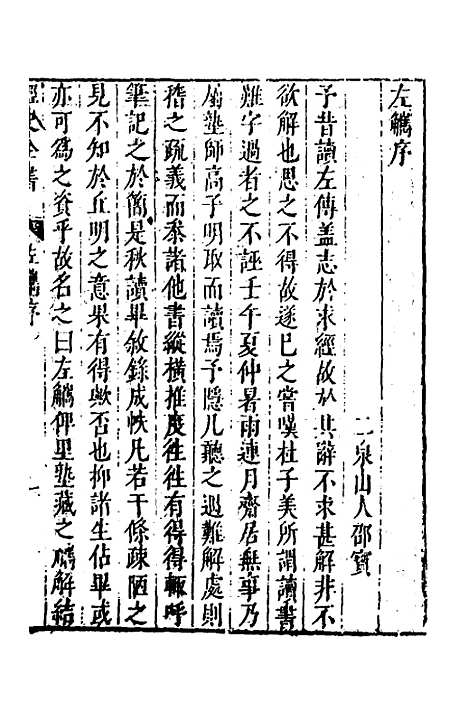 左觿序
二泉山人邵寶
予昔讀左傳盖志於求經故於其辭不求甚解非不
欲解也思之不得故遂已之嘗嘆杜子美所謂讀書
難字過者之不誣壬午夏仲暑雨連月齋居無事乃
屬塾師高子明取而讀焉予隱几聽之遇難解處則
稽之疏義而叅諸他書縱橫推度徃徃有得得輙呼
筆記之於簡是秋讀畢敘錄成帙凡若干條疎陋之
見不知於丘明之意果有得歟否也抑諸生佔畢或
亦可爲之資乎故名之曰左觿俾里塾藏之觿解結
經史全書 左觿序 一